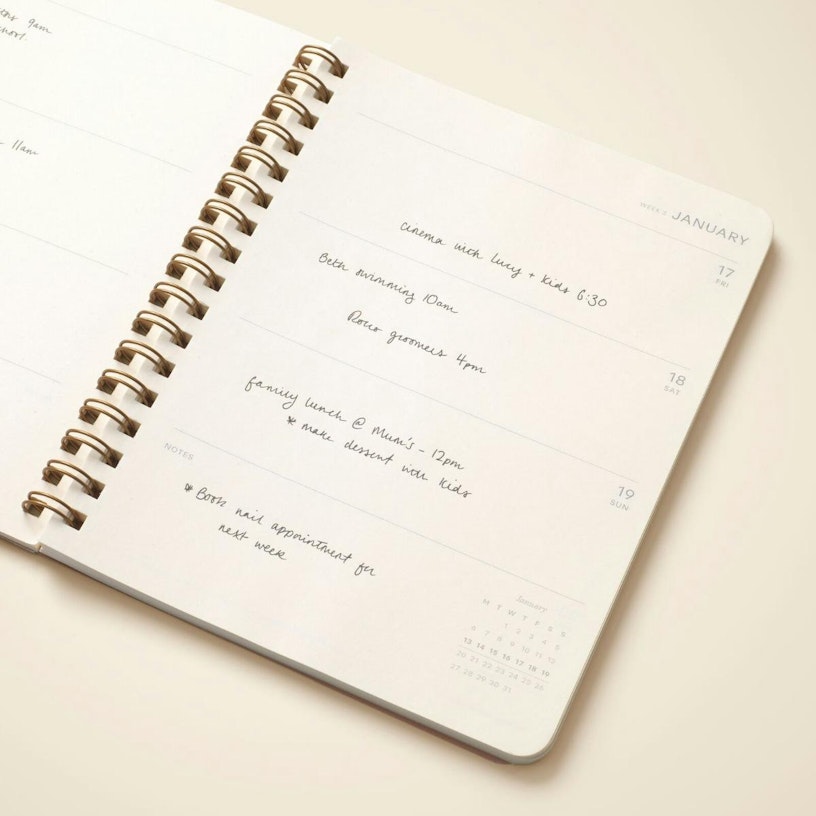 9am
11am
JANUARY
17
FRI
cinema with Lucy + kids 6:30
18
SAT
Beth swimming 10am
Rocco groomers 4pm
19
SUN
family lunch @ Mum's - 12pm
* make dessert with kids
NOTES
* Book nail appointment for
next week
January
M T W T F S S
1 2 3 4 5
6 7 8 9 10 11 12
13 14 15 16 17 18 19
20 21 22 23 24 25 26
27 28 29 30 31